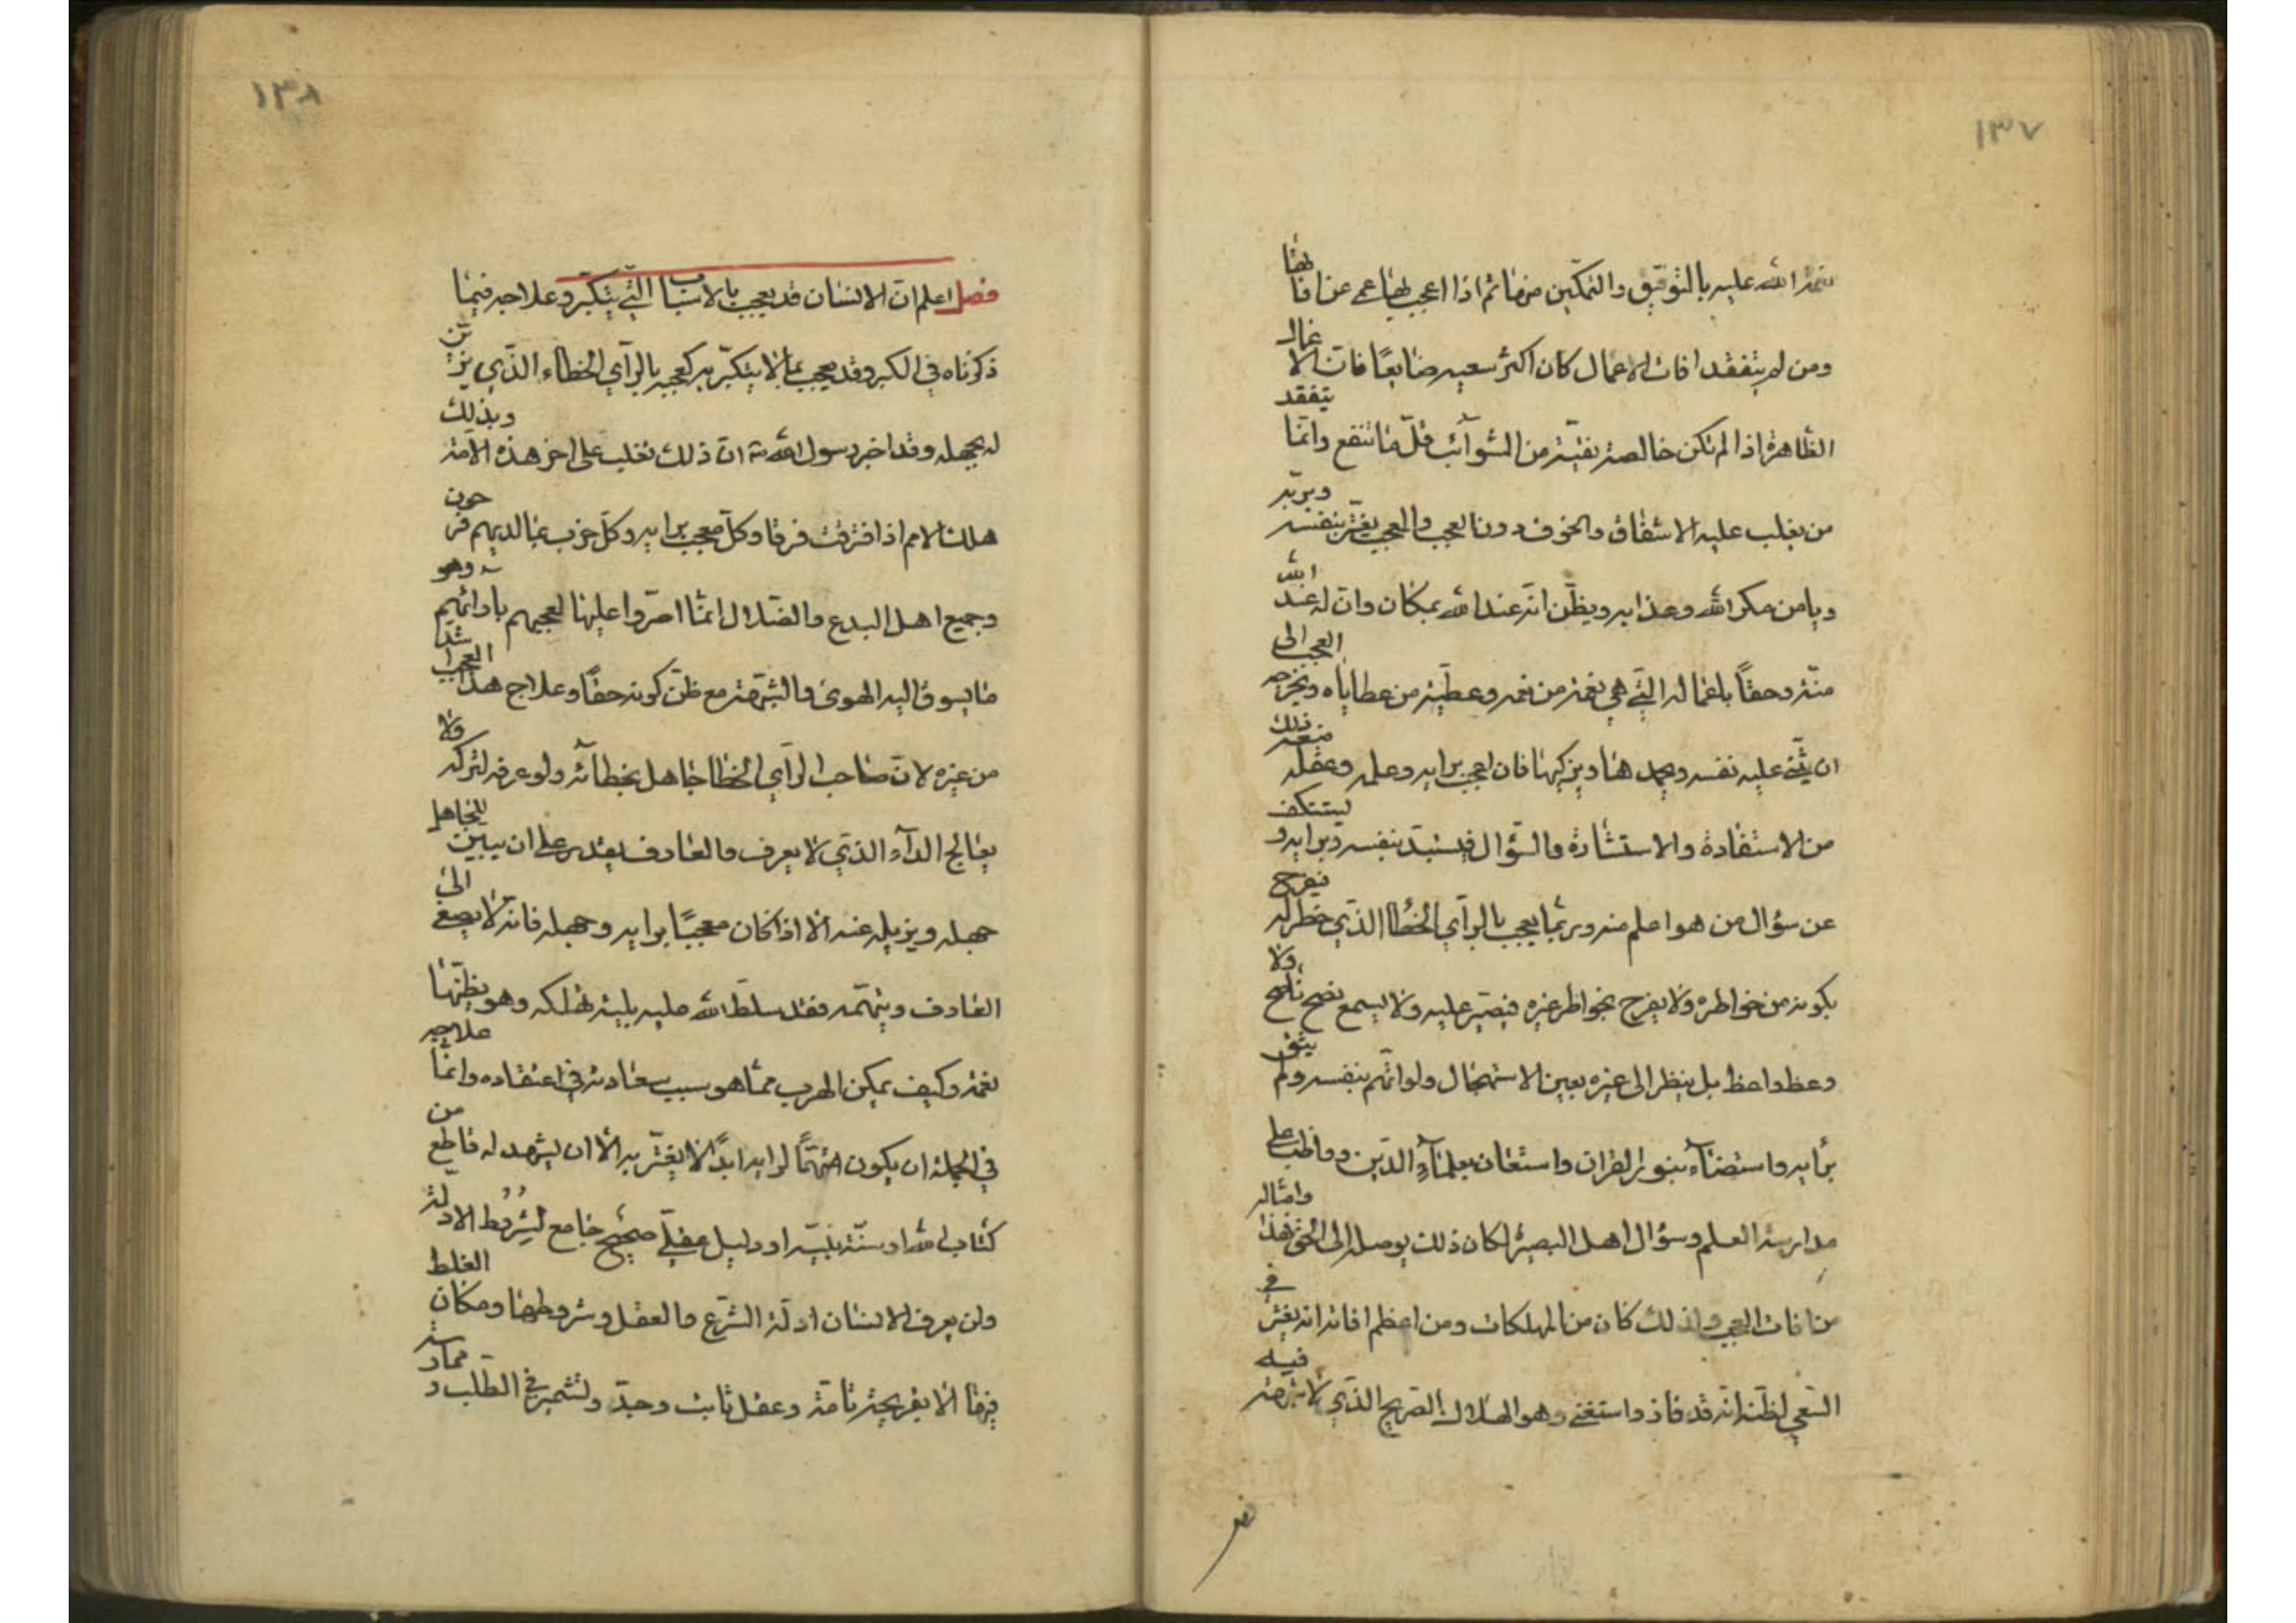 ١٣٧
نعمة الله عليه بالتوفيق والتمكين منها ثم اذا اعجب بها عمى عن افاتها
ومن لم يتفقد افات الاعمال كان اكثر سعيه ضايعًا فان الاعمال
الظاهرة اذا لم تكن خالصة نقيّة من الشوآئب قلّ ما تنفع وانّما يتفقد
من يغلب عليه الاشفاق والخوف دون العجب والمعجب يغترّ بنفسه وبربّه
ويامن مكر الله وعذابه ويظنّ انّه عند الله بمكان وانّ له عند الله
منّة وحقاً باعماله الّتي هي نعمة من نعمه وعطيّة من عطاياه ويخرجه العجب الى
ان يثنى عليه نفسه ويحمدها ويزكيها فان اعجب برايه وعلمه وعقله منعه ذلك
من الاستفادة والاستشارة والسّؤال فيستبدّ بنفسه وبرايه ويستنكف
عن سؤال من هو اعلم منه وربّما يعجب بالرآي الخطا الذّي خطر له فيفرح
بكونه من خواطره ولا يفرح بخواطر غيره فيصرّ عليه ولا يسمع نصح ناصح ولا
وعظ واعظ بل ينظر الى غيره بعين الاستجهال ولو اتّهم نفسه ولم يثق
برأيه واستضآء بنور القران واستعان بعلمآء الدّين وواظب على
مدارسة العلم وسؤال اهل البصيرة لكان ذلك يوصله الى الحق فهذا وامثاله
من افات العجب ولذلك كان من المهلكات ومن اعظم افاته انه يغترّ في
السّعي لظنّه انّه قد فاز واستغنى وهو الهلاك الصّريح الذّي لا شبهة فيه
١٣٨
فصل اعلم انّ الانسان قد يعجب بالاسباب الّتي يتكبّر وعلاجه فيما
ذكرناه في الكبر وقد يعجب بما لا يتكبّر به كعجبه بالرآي الخطاء الذّي يزيّن
له بجهله وقد اخبر رسول الله انّ ذلك تغلب على اخر هذه الامّة وبذلك
هلك الامم اذا افترقت فرقا وكلّ معجب برايه وكلّ حزب بما لديهم فرحون
وجميع اهل البدع والضّلال انّما اصرّوا عليها لعجبهم بآرائهم وهو
ما يسوق اليه الهوى والشهوة مع ظنّ كونه حقّاً وعلاج هذا العجب اشدّ
من غيره لانّ صاحب الرآي الخطا جاهل بخطآئه ولو عرفه لتركه ولا
يعالج الدآء الذّي لا يعرف والعارف يقدر على ان يبيّن للجاهل
جهله ويزيله عنه الّا اذا كان معجبًا برايه وجهله فانّه لا يصغى الى
العارف ويتهمه فقد سلّط الله عليه بليّة تهلكه وهو يظنّها
نعمة وكيف يمكن الهرب ممّا هو سبب سعادته في اعتقاده وانّما علاجه
في الجملة ان يكون متّهمًا لرايه ابدًا لا يغترّ به الّا ان يشهد له قاطع من
كتاب الله او سنّة نبيّه او دليل عقليّ صحيح جامع لشروط الادلّة
ولن يعرف الانسان ادلّة الشّرع والعقل وشروطها ومكان الغلط
فيها الّا بقريحة تامّة وعقل ثابت وجدّ وتشمّر في الطّلب وممارسة